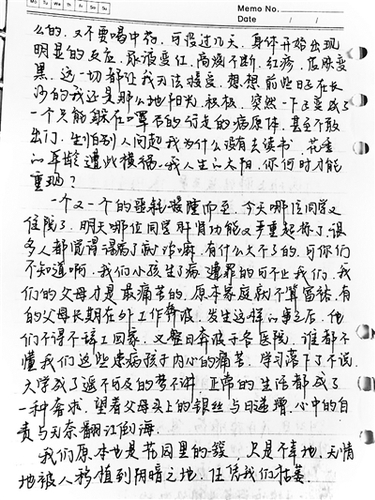 Memo No.
Mo Tu We Th Fr Sa Su
Date / /
么的，又不要喝中药，可没过几天，身体开始出现
明显的反应，尿液变红，高烧不断，红疹，皮肤变
黑，这一切都让我无法接受，想想前些日子在长
沙的我还是那么地阳光，积极，突然一下子变成了
一个只能躲在口罩后的行走的病原体，甚至不敢
出门，生怕别人问起我为什么没有去读书，花季
的年龄遭此横祸，我人生的太阳，你何时才能
重现？
一个又一个的噩耗接踵而至，今天哪位同学又
住院了，明天哪位同学肝肾功能又严重超标了，很
多人都觉得得病了就治嘛，有什么大不了的，可你们
不知道啊，我们小孩生了病，遭罪的可不止我们，我
们的父母才是最痛苦的，原本家庭就不算富裕，有
的父母长期在外工作奔波，发生这样的事之后，他
们不得不辞工回家，又整日奔波于各医院，谁都不
懂我们这些患病孩子内心的痛苦，学习落下了不说，
大学成了遥不可及的梦不讲，正常的生活都成了
一种奢求，望着父母头上的银丝与日递增，心中的自
责与无奈翻江倒海，
我们原本也是花园里的 ，只是不幸地，无情
地被人移植到阴暗之地，任凭我们枯萎，